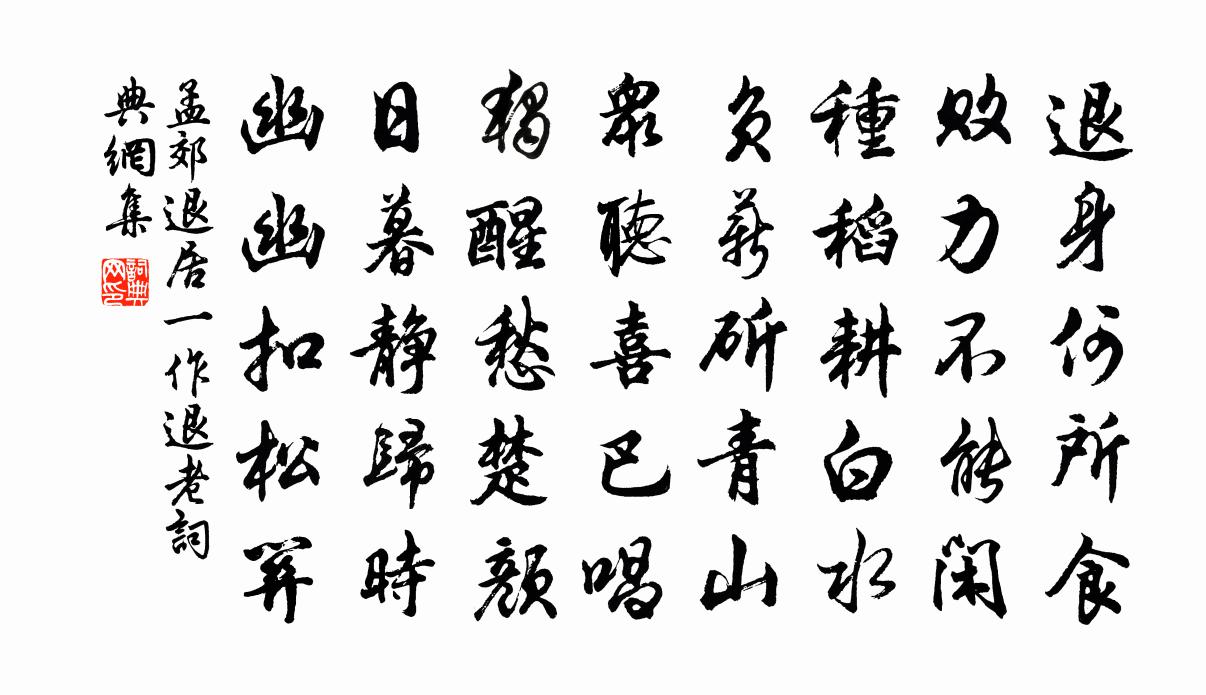 退身何所食
敗力不能閑
種稻耕白水
負薪斫青山
眾聽喜巴唱
獨醒愁楚顏
日暮静歸時
幽幽扣松關
孟郊退居一作退老詞
典網集
詞典
网印